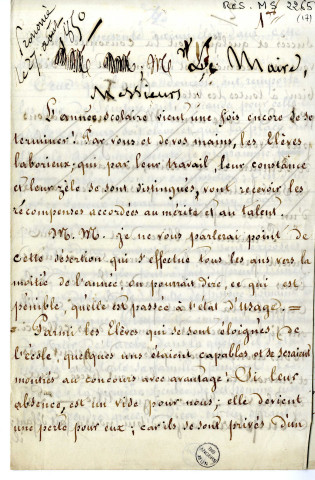 RÉS. MS 2265
(17)
Prononcé
le 27 août 1850
M. Le Maire,
Messieurs
L'année scolaire vient une fois encore de se
terminer. Par vous et de vos mains, les Elèves
laborieux, qui par leur travail, leur constance
et leur zèle se sont distingués, vont recevoir les
récompenses accordées au mérite et au talent.
M. M. je ne vous parlerai point de
cette désertion qui s'effectue tous les ans vers la
moitié de l'année; on pourrait dire, ce qui est
pénible, qu'elle est passée à l'état d'usage. =
= Parmi les Elèves qui se sont éloignés de
l'école, quelques uns étaient capables et se seraient
montrés au concours avec avantage. Si leur
absence, est un vide pour nous; elle devient
une perte pour eux; car ils se sont privés d'un